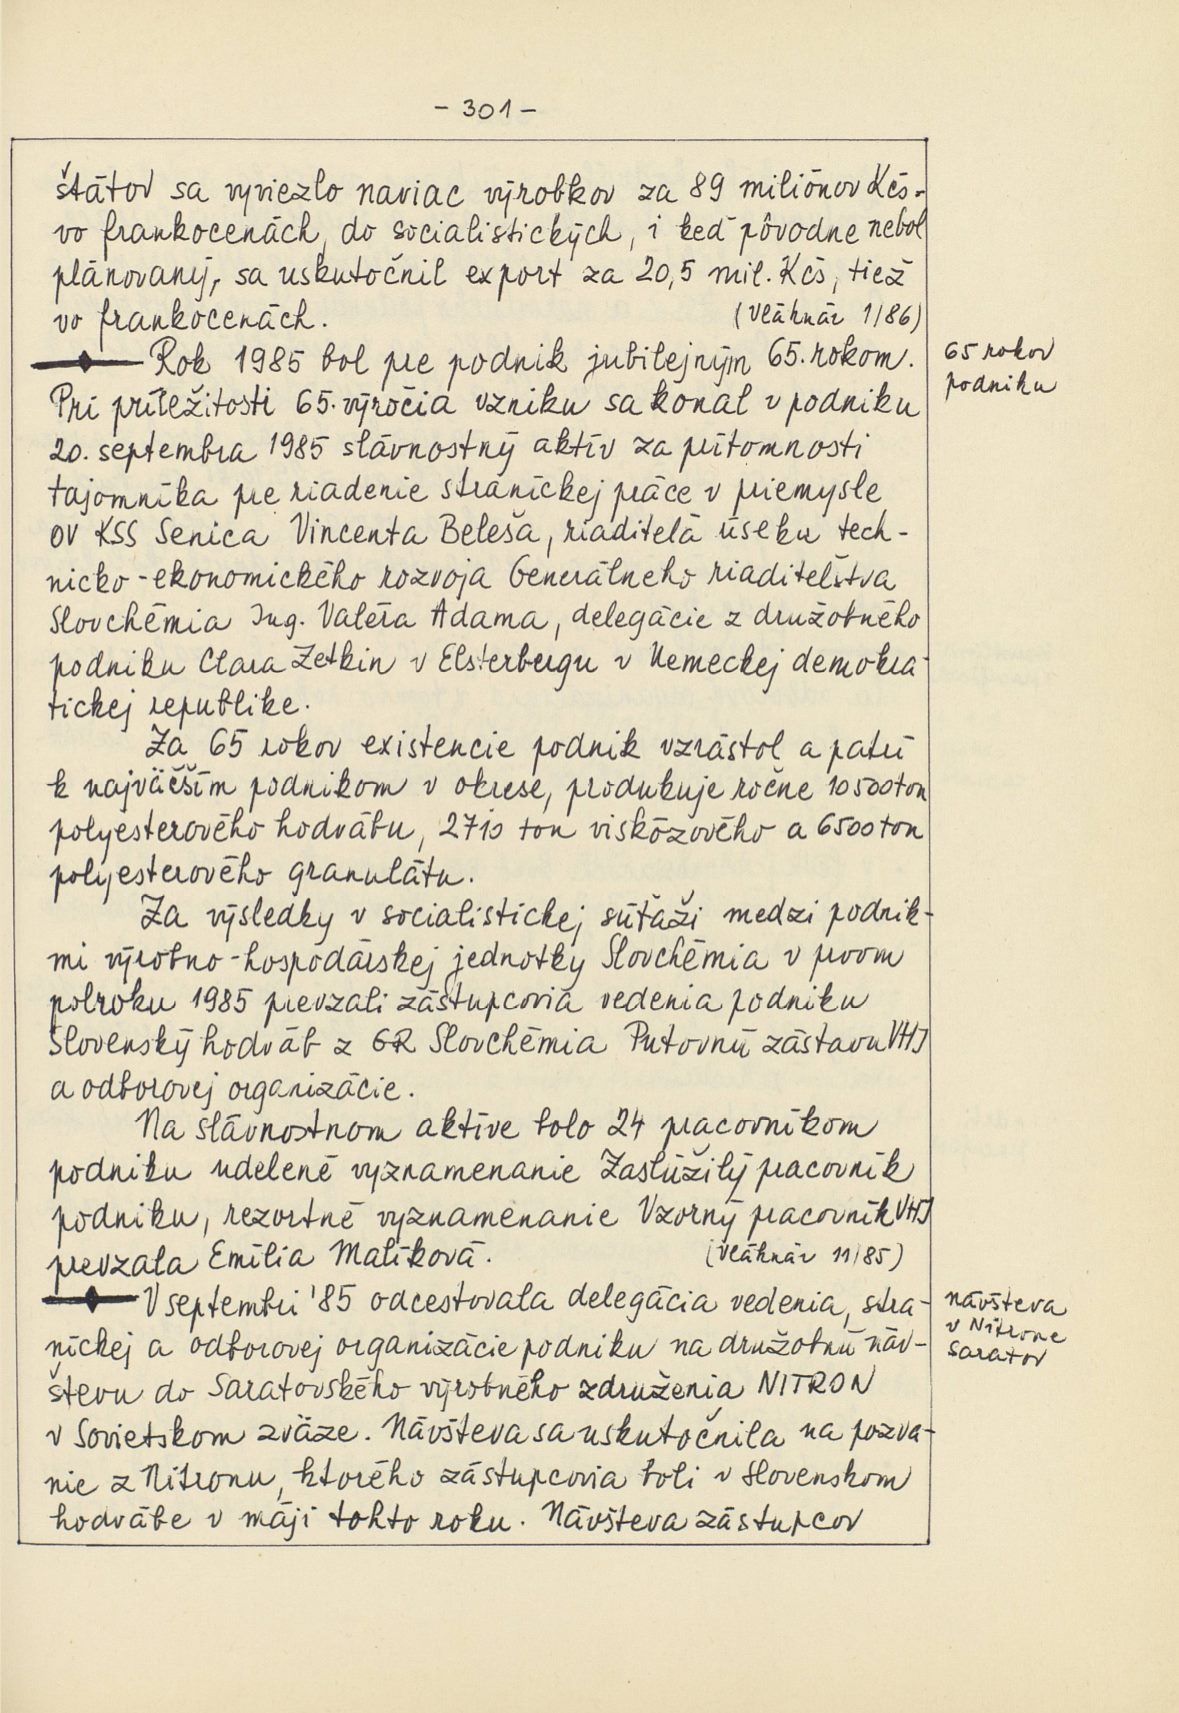 - 301 -
štátov sa vyviezlo naviac výrobkov za 89 miliónov Kčs -
vo frankocenách, do socialistických, i keď pôvodne nebol
plánovaný, sa uskutočnil export za 20,5 mil. Kčs, tiež
vo frankocenách. (Vláknár 1/86)
Rok 1985 bol pre podnik jubilejným 65. rokom.
65 rokov
podniku
Pri príležitosti 65. výročia vzniku sa konal v podniku
20. septembra 1985 slávnostný aktív za prítomnosti
tajomníka pre riadenie straníckej práce v priemysle
OV KSS Senica Vincenta Beleša, riaditeľa úseku tech-
nicko-ekonomického rozvoja Generálneho riaditeľstva
Slovchémia Ing. Valéra Adama, delegácie z družobného
podniku Clara Zetkin v Elsterbergu v Nemeckej demokra-
tickej republike.
Za 65 rokov existencie podnik vzrástol a patrí
k najväčším podnikom v okrese, produkuje ročne 10500 ton
polyesterového hodvábu, 2710 ton viskózového a 6500 ton
polyesterového granulátu.
Za výsledky v socialistickej súťaži medzi podnik-
mi výrobno-hospodárskej jednotky Slovchémia v prvom
polroku 1985 prevzali zástupcovia vedenia podniku
Slovenský hodváb z GR Slovchémia Putovnú zástavu VHJ
a odborovej organizácie.
Na slávnostnom aktíve bolo 24 pracovníkom
podniku udelené vyznamenanie Zaslúžilý pracovník
podniku, rezortné vyznamenanie Vzorný pracovník VHJ
prevzala Emília Malíková. (Vláknár 11/85)
V septembri '85 odcestovala delegácia vedenia, stra-
návšteva
v Nitrone
Saratov
níckej a odborovej organizácie podniku na družobnú náv-
števu do Saratovského výrobného združenia NITRON
v Sovietskom zväze. Návšteva sa uskutočnila na pozva-
nie z Nitronu, ktorého zástupcovia boli v Slovenskom
hodvábe v máji tohto roku. Návšteva zástupcov